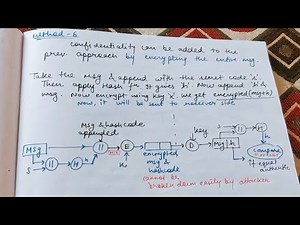 Method-6
confidentiality can be added to the
prev. approach by encrypting the entire msg
Take the msg & append with the secret code 's'.
Then apply Hash fn. It gives 'h'. Now append 'h' &
msg. Now encrypt using key 'k' we get encrypted(msg+h)
Now, it will be sent to receiver side
Msg & hashcode
appended
key
Msg
||
E
D
Msg
h
||
H
S
||
H
h
K
encrypted
msg &
hashcode
compare
if equal
authentic
cannot be
broken down easily by attacker